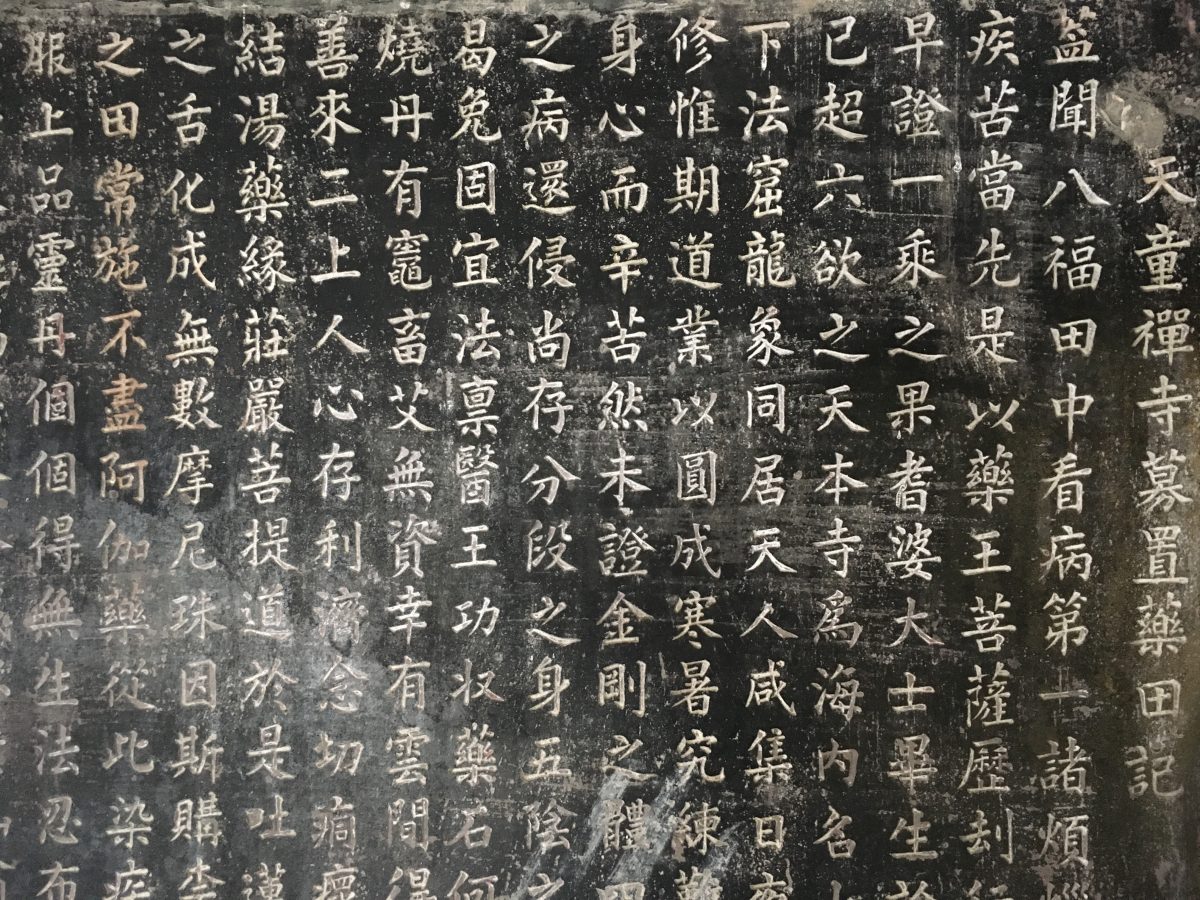 天童禪寺募置藥田記
葢聞八福田中看病第一諸煩惱
疾苦當先是以藥王菩薩歷刦行
早證一乘之果耆婆大士畢生於
已超六欲之天本寺爲海內名
下法窟龍象同居天人咸集日夜
修惟期道業以圓成寒暑究練難
身心而辛苦然未證金剛之體四
之病還侵尚存分段之身五陰之
曷免固宜法禀醫王功收藥石何
燒丹有竈畜艾無資幸有雲間得
善來二上人心存利濟念切痌瘝
結湯藥緣莊嚴菩提道於是吐蓮
之舌化成無數摩尼珠因斯購
之田常施不盡阿伽藥從此染疾
服上品靈丹個個得無生法忍布